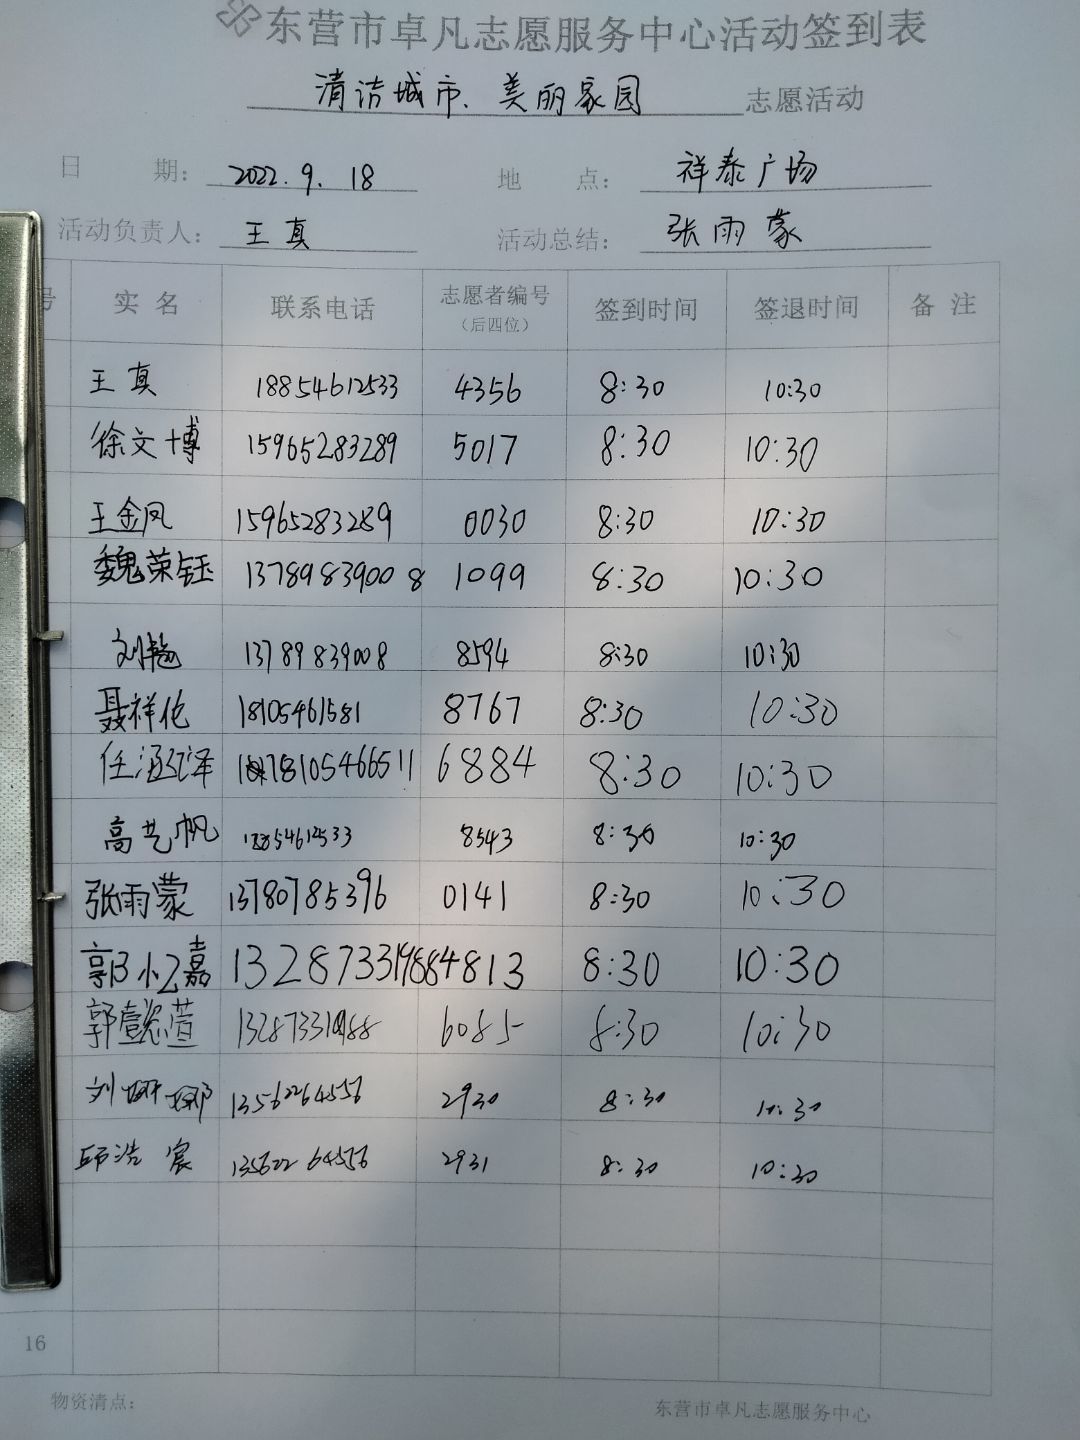 东营市卓凡志愿服务中心活动签到表
清洁城市、美丽家园 志愿活动
日 期: 2022.9.18 地 点: 祥泰广场
活动负责人: 王真 活动总结: 张雨蒙
号 实名 联系电话 志愿者编号 (后四位) 签到时间 签退时间 备注
王真 18854612533 4356 8:30 10:30
徐文博 15965283289 5017 8:30 10:30
王金凤 15965283289 0030 8:30 10:30
魏荣钰 13789839008 1099 8:30 10:30
刘艳 13789839008 8594 8:30 10:30
聂祥伦 18105461581 8767 8:30 10:30
任涵泽 6884 8:30 10:30
高艺帆 18854612533 8543 8:30 10:30
张雨蒙 13780785396 0141 8:30 10:30
郭小嘉 13287331988 4813 8:30 10:30
郭懿萱 13287331988 6085 8:30 10:30
刘娜娜 13562264556 2930 8:30 10:30
邱浩宸 13562264556 2931 8:30 10:30
16
物资清点:
东营市卓凡志愿服务中心